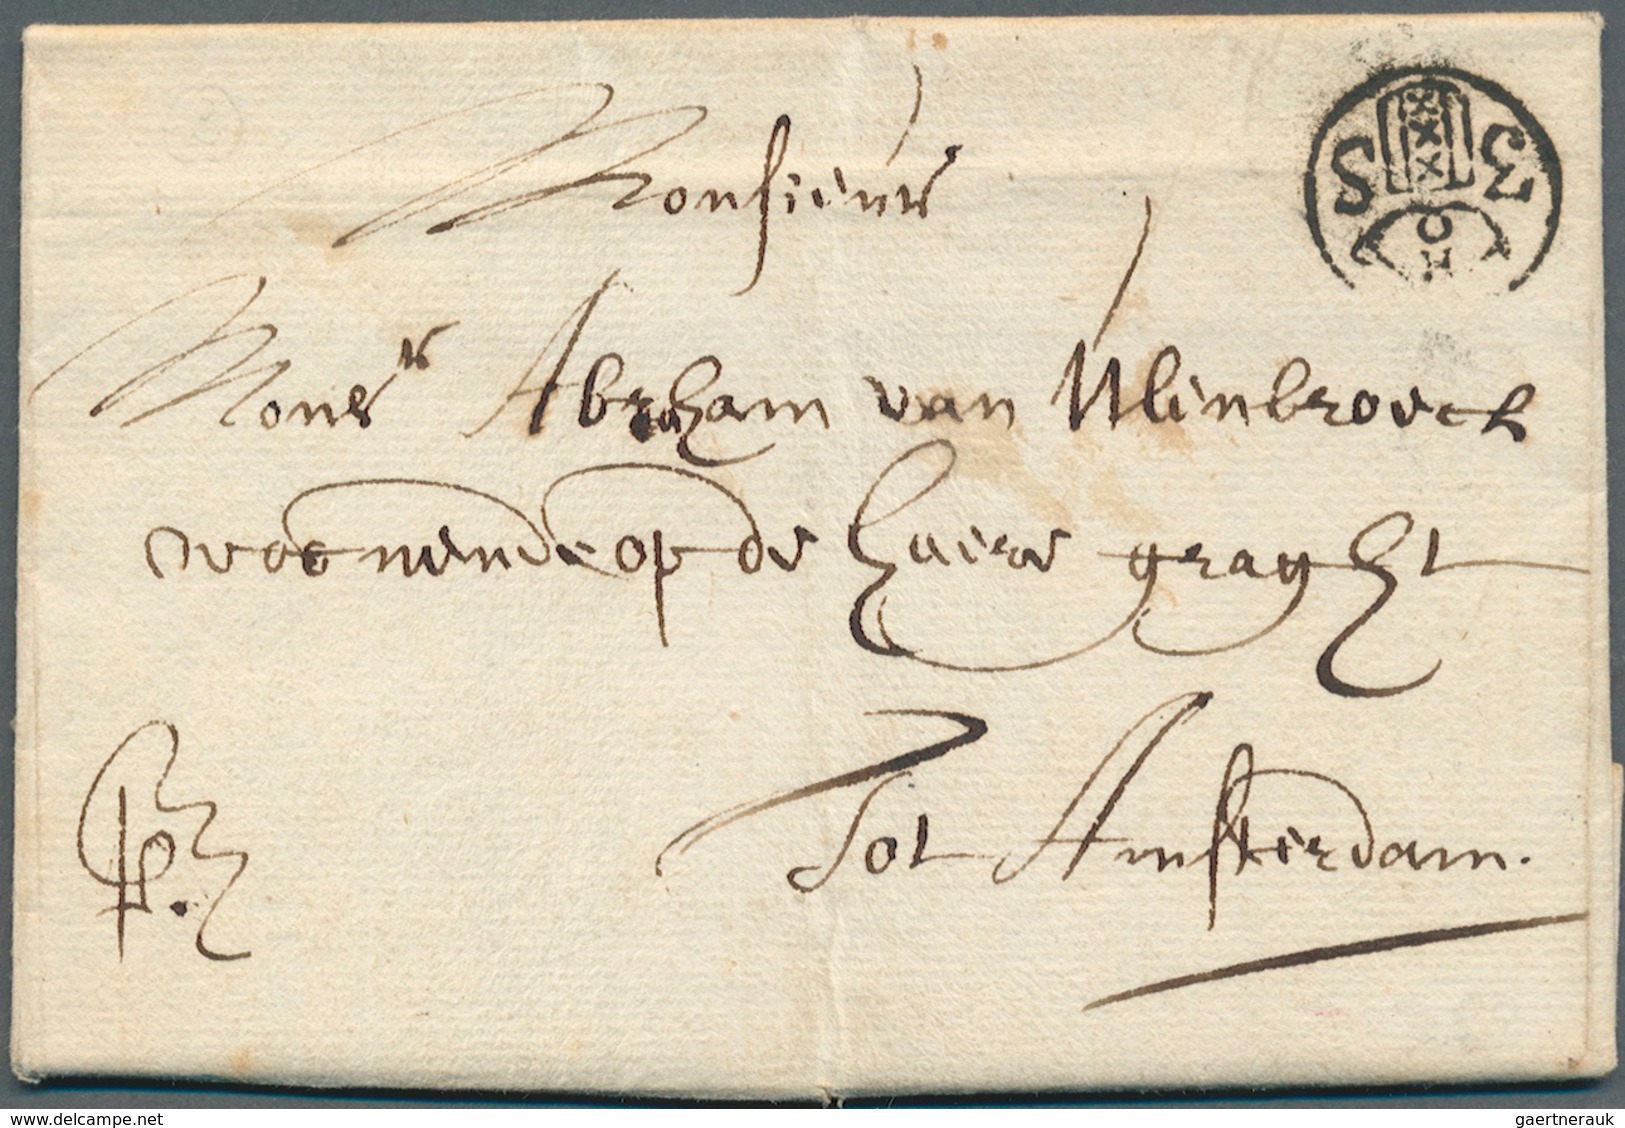 Monsieur
Monsr Abraham van Ulenbroeck
woonende op de heere graght
Tot Amsterdam.
S XXX 3
gaertnerauk